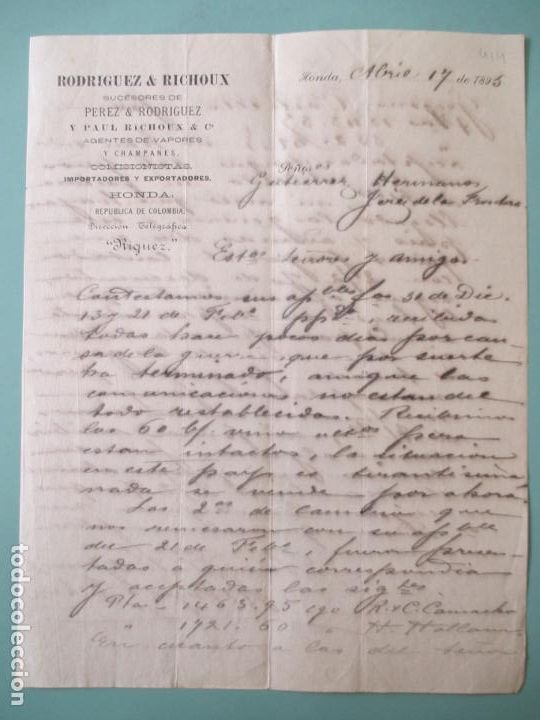 RODRIGUEZ & RICHOUX
SUCESORES DE
PEREZ & RODRIGUEZ
Y PAUL RICHOUX & Cº
AGENTES DE VAPORES
Y CHAMPANES.
COMISIONISTAS.
IMPORTADORES Y EXPORTADORES.
HONDA.
REPUBLICA DE COLOMBIA.
Direccion Telégrafica
"Riquez."
Honda, Abril 17 de 1895
Señores
Gutierrez Hermanos
Jerez de la Frontera
Estos señores y amigos
Contestamos sus apbles fas 31 de Dic.
13 y 21 de Febº ppº, recibidas
todas hace pocos dias por cau
sa de la guerra, que por suerte
ha terminado, aunque las
comunicaciones no estan del
todo restablecidas. Recibimos
las 60 vino pero
estan intactos, la situacion
en este pays es tirantisima
nada se vende por ahora.
Las 2as de cambio que
nos remesaron con su apble
del 21 de Febº, fueron presen
tadas a quien correspondia
y aceptadas las sigtes
Ptas 1463.95 cgo R. & C. Camacho
" 1721.60 " H.
En cuanto a las del señor
todocoleccion